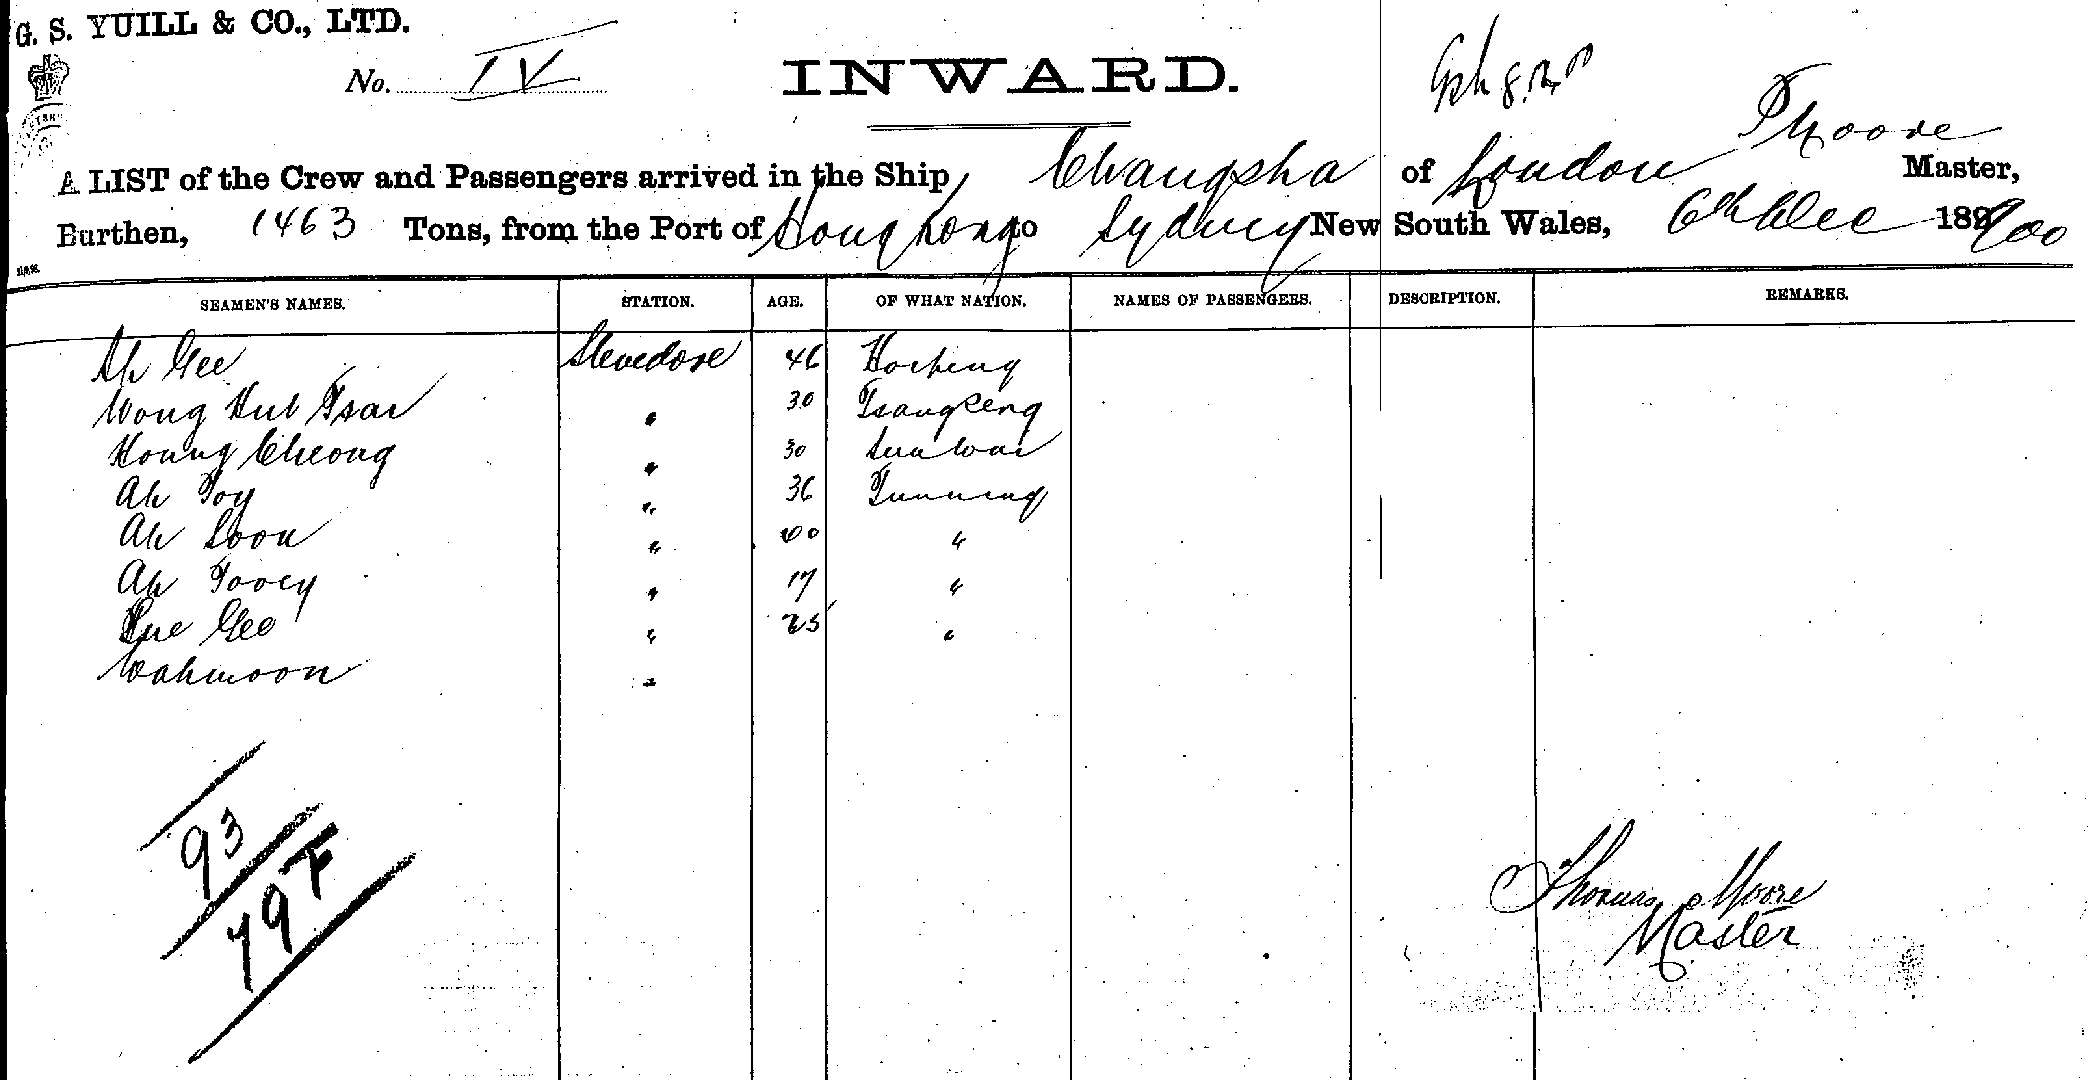 G. S. YUILL & CO., LTD.
No. IV
INWARD.
T Moore
A LIST of the Crew and Passengers arrived in the Ship Changsha of London Master,
Burthen, 1463 Tons, from the Port of Hong Kong to Sydney New South Wales, 6th Dec 1900
SEAMEN'S NAMES. STATION. AGE. OF WHAT NATION. NAMES OF PASSENGERS. DESCRIPTION. REMARKS.
Ah Gee Stevedore 46 Hoiping
Wong Hub Tsai " 30 Tsangseng
Koung Cheong " 30 Sun Wai
Ah Toy " 36 Sunning
Ah Soon " "
Ah Tooey " 17 "
Sue Gee " 25 "
Wahmoon "
93
79 F
Thomas Moore
Master